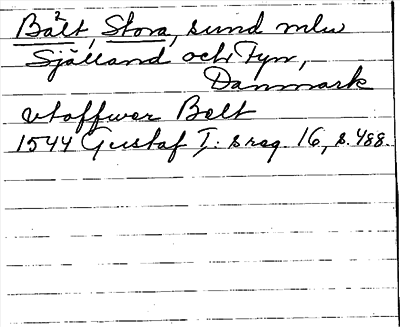 Bält, Stora, sund mlw
Själland och Fyn,
Danmark
utaffwer Belt
1544 Gustaf I:s reg. 16, s. 488.